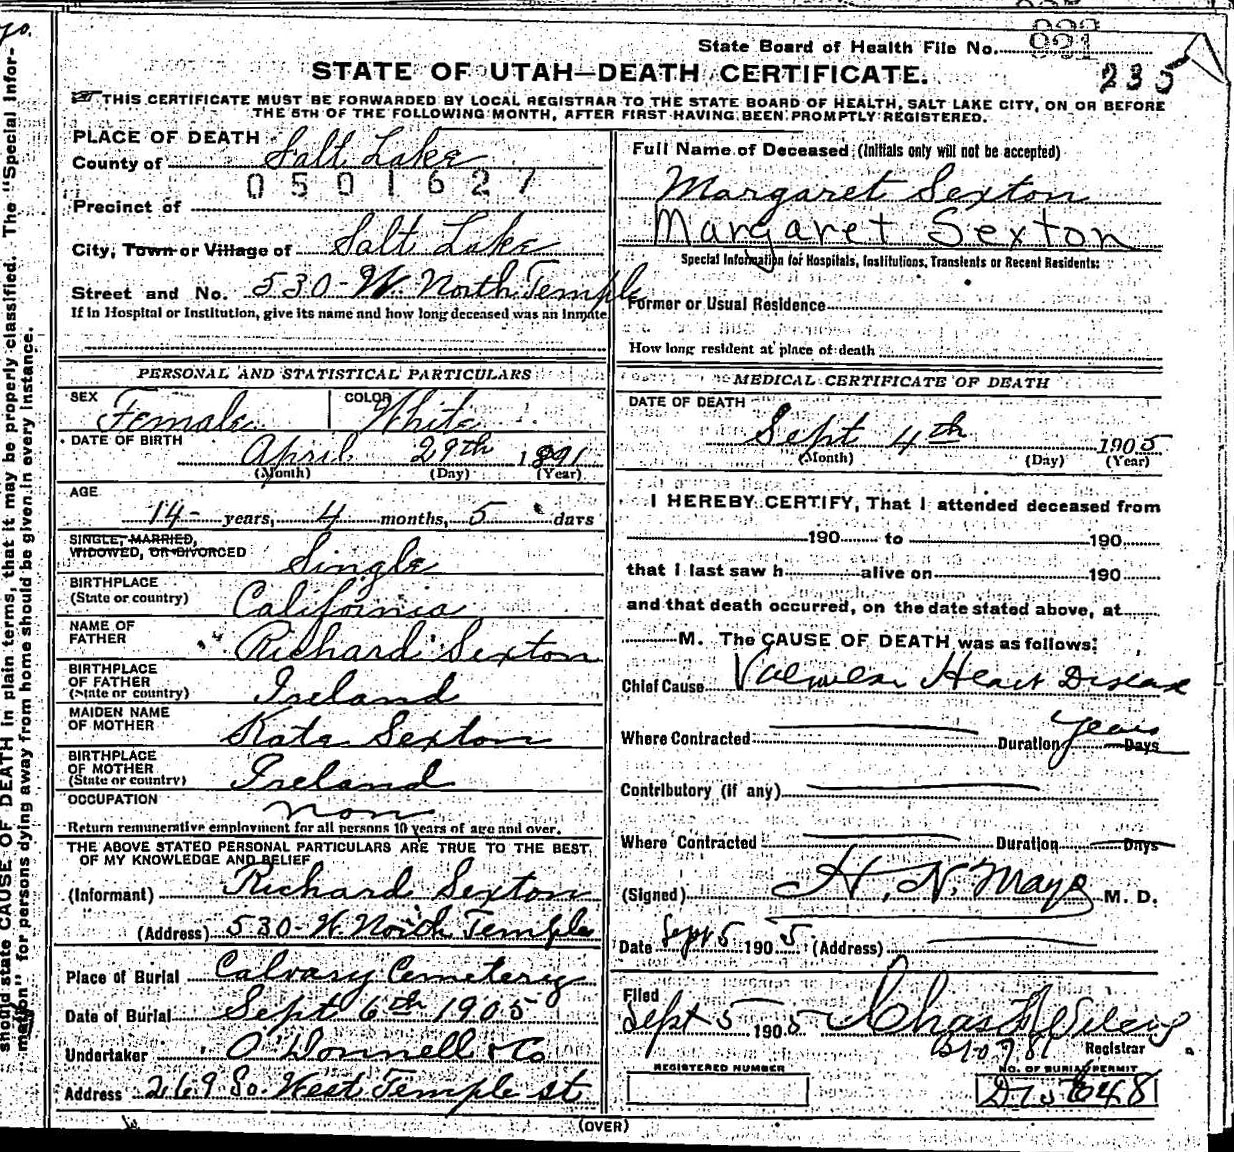 State Board of Health File No.
235
STATE OF UTAH—DEATH CERTIFICATE.
THIS CERTIFICATE MUST BE FORWARDED BY LOCAL REGISTRAR TO THE STATE BOARD OF HEALTH, SALT LAKE CITY, ON OR BEFORE
THE 5TH OF THE FOLLOWING MONTH, AFTER FIRST HAVING BEEN PROMPTLY REGISTERED.
PLACE OF DEATH
County of Salt Lake
0501627
Precinct of
City, Town or Village of Salt Lake
Street and No. 530-W. North Temple
If in Hospital or Institution, give its name and how long deceased was an inmate
Full Name of Deceased (Initials only will not be accepted)
Margaret Sexton
Margaret Sexton
Special Information for Hospitals, Institutions, Transients or Recent Residents:
Former or Usual Residence
How long resident at place of death
PERSONAL AND STATISTICAL PARTICULARS
SEX Female COLOR White
DATE OF BIRTH
April 29th 1891
(Month) (Day) (Year)
AGE
14- years, 4 months, 5 days
SINGLE, MARRIED,
WIDOWED, OR DIVORCED Single
BIRTHPLACE
(State or country) California
NAME OF
FATHER Richard Sexton
BIRTHPLACE
OF FATHER
(State or country) Ireland
MAIDEN NAME
OF MOTHER Kate Sexton
BIRTHPLACE
OF MOTHER
(State or country) Ireland
OCCUPATION non
Return remunerative employment for all persons 10 years of age and over.
THE ABOVE STATED PERSONAL PARTICULARS ARE TRUE TO THE BEST
OF MY KNOWLEDGE AND BELIEF
(Informant) Richard Sexton
(Address) 530-W. North Temple
Place of Burial Calvary Cemetery
Date of Burial Sept 6th 1905
Undertaker O'Donnell & Co
Address 269 So. West Temple st
MEDICAL CERTIFICATE OF DEATH
DATE OF DEATH
Sept 4th 1905
(Month) (Day) (Year)
I HEREBY CERTIFY, That I attended deceased from
190 to 190
that I last saw h alive on 190
and that death occurred, on the date stated above, at
M. The CAUSE OF DEATH was as follows:
Chief Cause Valvular Heart Disease
Where Contracted Duration years Days
Contributory (if any)
Where Contracted Duration Days
(Signed) H. N. Mayo M. D.
Date Sept 5 1905 (Address)
Filed
Sept 5 1905 Chas
Registrar
REGISTERED NUMBER
NO. OF BURIAL PERMIT
(OVER)
should state CAUSE OF DEATH in plain terms, that it may be properly classified. The "Special Infor-
mation" for persons dying away from home should be given in every instance.